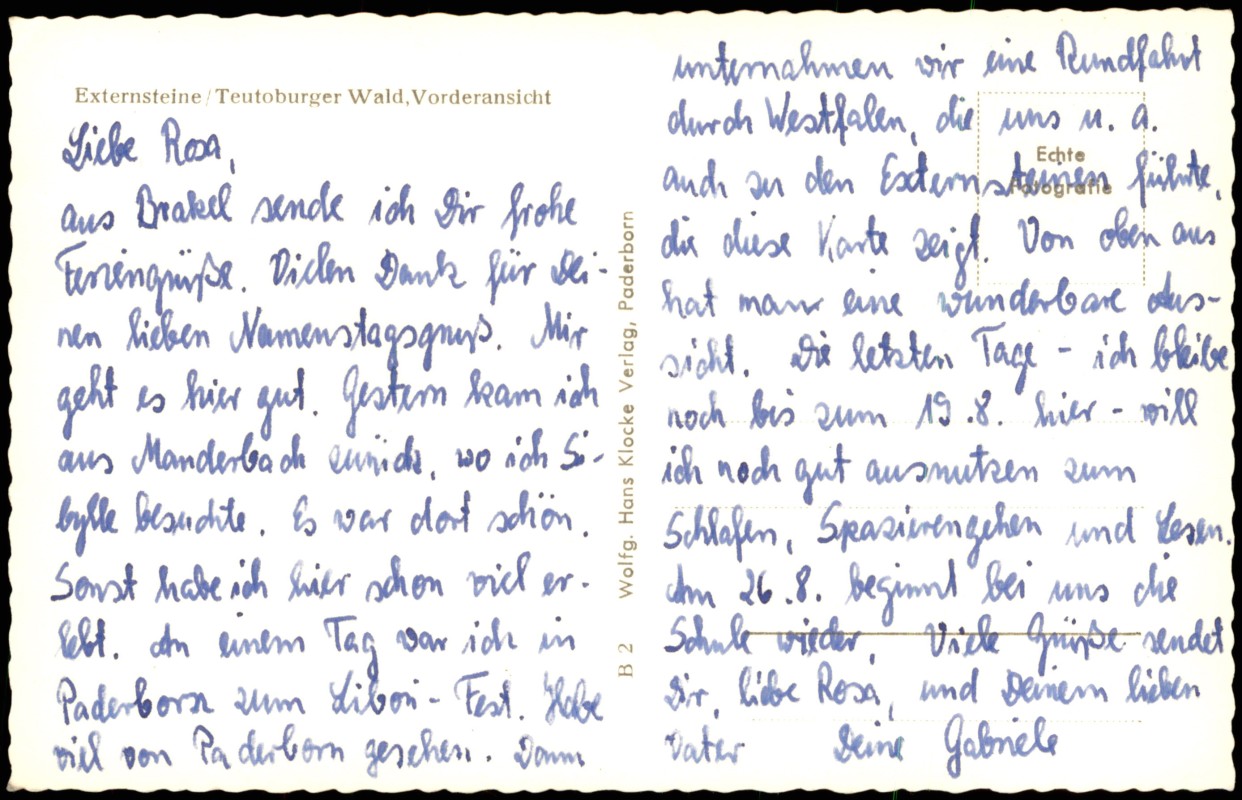 Externsteine/Teutoburger Wald, Vorderansicht
Liebe Rosa,
aus Brakel sende ich Dir frohe
Feriengrüße. Vielen Dank für Dei-
nen lieben Namenstagsgruß. Mir
geht es hier gut. Gestern kam ich
aus Manderbach zurück, wo ich Si-
bylle besuchte. Es war dort schön.
Sonst habe ich hier schon viel er-
lebt. An einem Tag war ich in
Paderborn zum Libori-Fest. Habe
viel von Paderborn gesehen. Dann
B 2 Wolfg. Hans Klocke Verlag, Paderborn
unternahmen wir eine Rundfahrt
durch Westfalen, die uns u. a.
Echte
Fotografie
auch zu den Externsteinen führte,
die diese Karte zeigt. Von oben aus
hat man eine wunderbare Aus-
sicht. Die letzten Tage - ich bleibe
noch bis zum 19.8. hier - will
ich noch gut ausnutzen zum
Schlafen, Spazierengehen und Lesen.
Am 26.8. beginnt bei uns die
Schule wieder. Viele Grüße sendet
Dir, liebe Rosa, und Deinem lieben
Vater Deine Gabriele